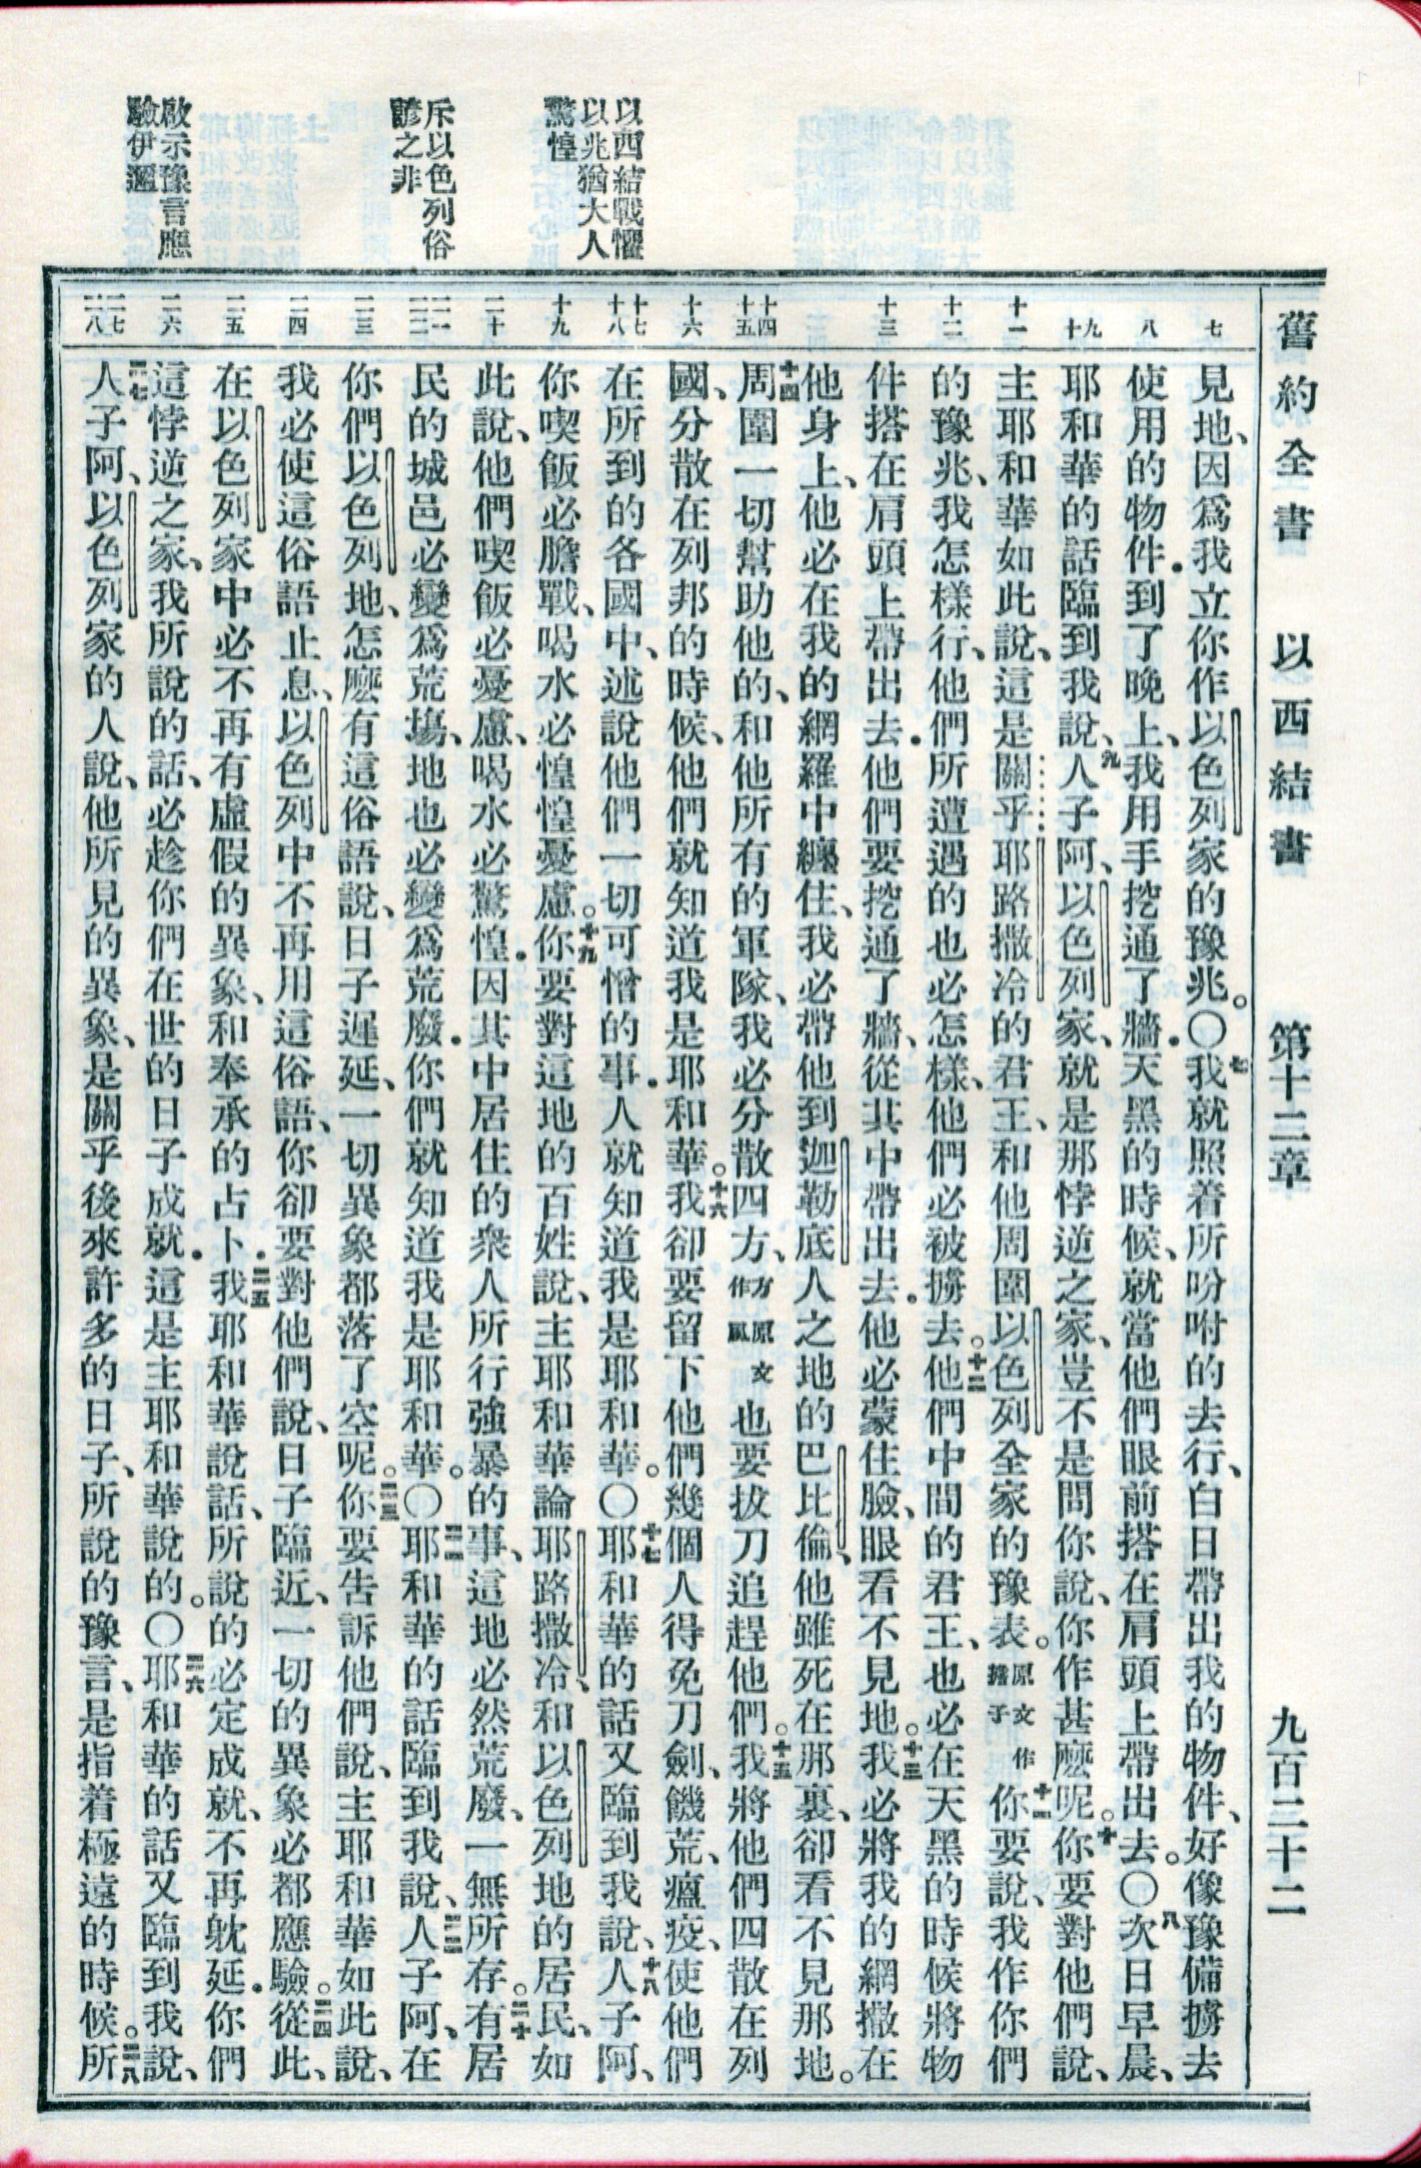 舊約全書 以西結書 第十二章 九百二十二
以西結戰懼
以兆猶大人
驚惶
斥以色列俗
諺之非
啟示豫言應
驗伊邇
七
見地、因爲我立你作以色列家的豫兆。〇七我就照着所吩咐的去行、白日帶出我的物件、好像豫備擄去
八
使用的物件．到了晚上、我用手挖通了牆．天黑的時候、就當他們眼前搭在肩頭上帶出去。〇八次日早晨、
九
十
耶和華的話臨到我說、九人子阿、以色列家、就是那悖逆之家、豈不是問你說、你作甚麼呢。十你要對他們說、
十一
主耶和華如此說、這是關乎耶路撒冷的君王、和他周圍以色列全家的豫表。原文作擔子十一你要說、我作你們
十二
的豫兆、我怎樣行、他們所遭遇的也必怎樣、他們必被擄去。十二他們中間的君王、也必在天黑的時候將物
十三
件搭在肩頭上帶出去．他們要挖通了牆、從其中帶出去．他必蒙住臉、眼看不見地。十三我必將我的網撒在
他身上、他必在我的網羅中纏住、我必帶他到迦勒底人之地的巴比倫、他雖死在那裏、卻看不見那地。
十四
十五
十四周圍一切幫助他的、和他所有的軍隊、我必分散四方、方原文作風也要拔刀追趕他們。十五我將他們四散在列
十六
國、分散在列邦的時候、他們就知道我是耶和華。十六我卻要留下他們幾個人得免刀劍、饑荒、瘟疫、使他們
十七
十八
在所到的各國中、述說他們一切可憎的事．人就知道我是耶和華。〇十七耶和華的話又臨到我說、十八人子阿、
十九
你喫飯必膽戰、喝水必惶惶憂慮。十九你要對這地的百姓說、主耶和華論耶路撒冷、和以色列地的居民、如
二十
此說、他們喫飯必憂慮、喝水必驚惶．因其中居住的衆人所行強暴的事、這地必然荒廢、一無所存。二十有居
二一
二二
民的城邑必變爲荒塲、地也必變爲荒廢．你們就知道我是耶和華。〇二一耶和華的話臨到我說、二二人子阿、在
二三
你們以色列地、怎麼有這俗語說、日子遲延、一切異象都落了空呢。二三你要告訴他們說、主耶和華如此說、
二四
我必使這俗語止息、以色列中不再用這俗語、你卻要對他們說、日子臨近、一切的異象必都應驗。二四從此、
二五
在以色列家中必不再有虛假的異象、和奉承的占卜．二五我耶和華說話、所說的必定成就、不再躭延．你們
二六
這悖逆之家、我所說的話、必趁你們在世的日子成就．這是主耶和華說的。〇二六耶和華的話又臨到我說、
二七
二八
二七人子阿、以色列家的人說、他所見的異象、是關乎後來許多的日子、所說的豫言、是指着極遠的時候。二八所